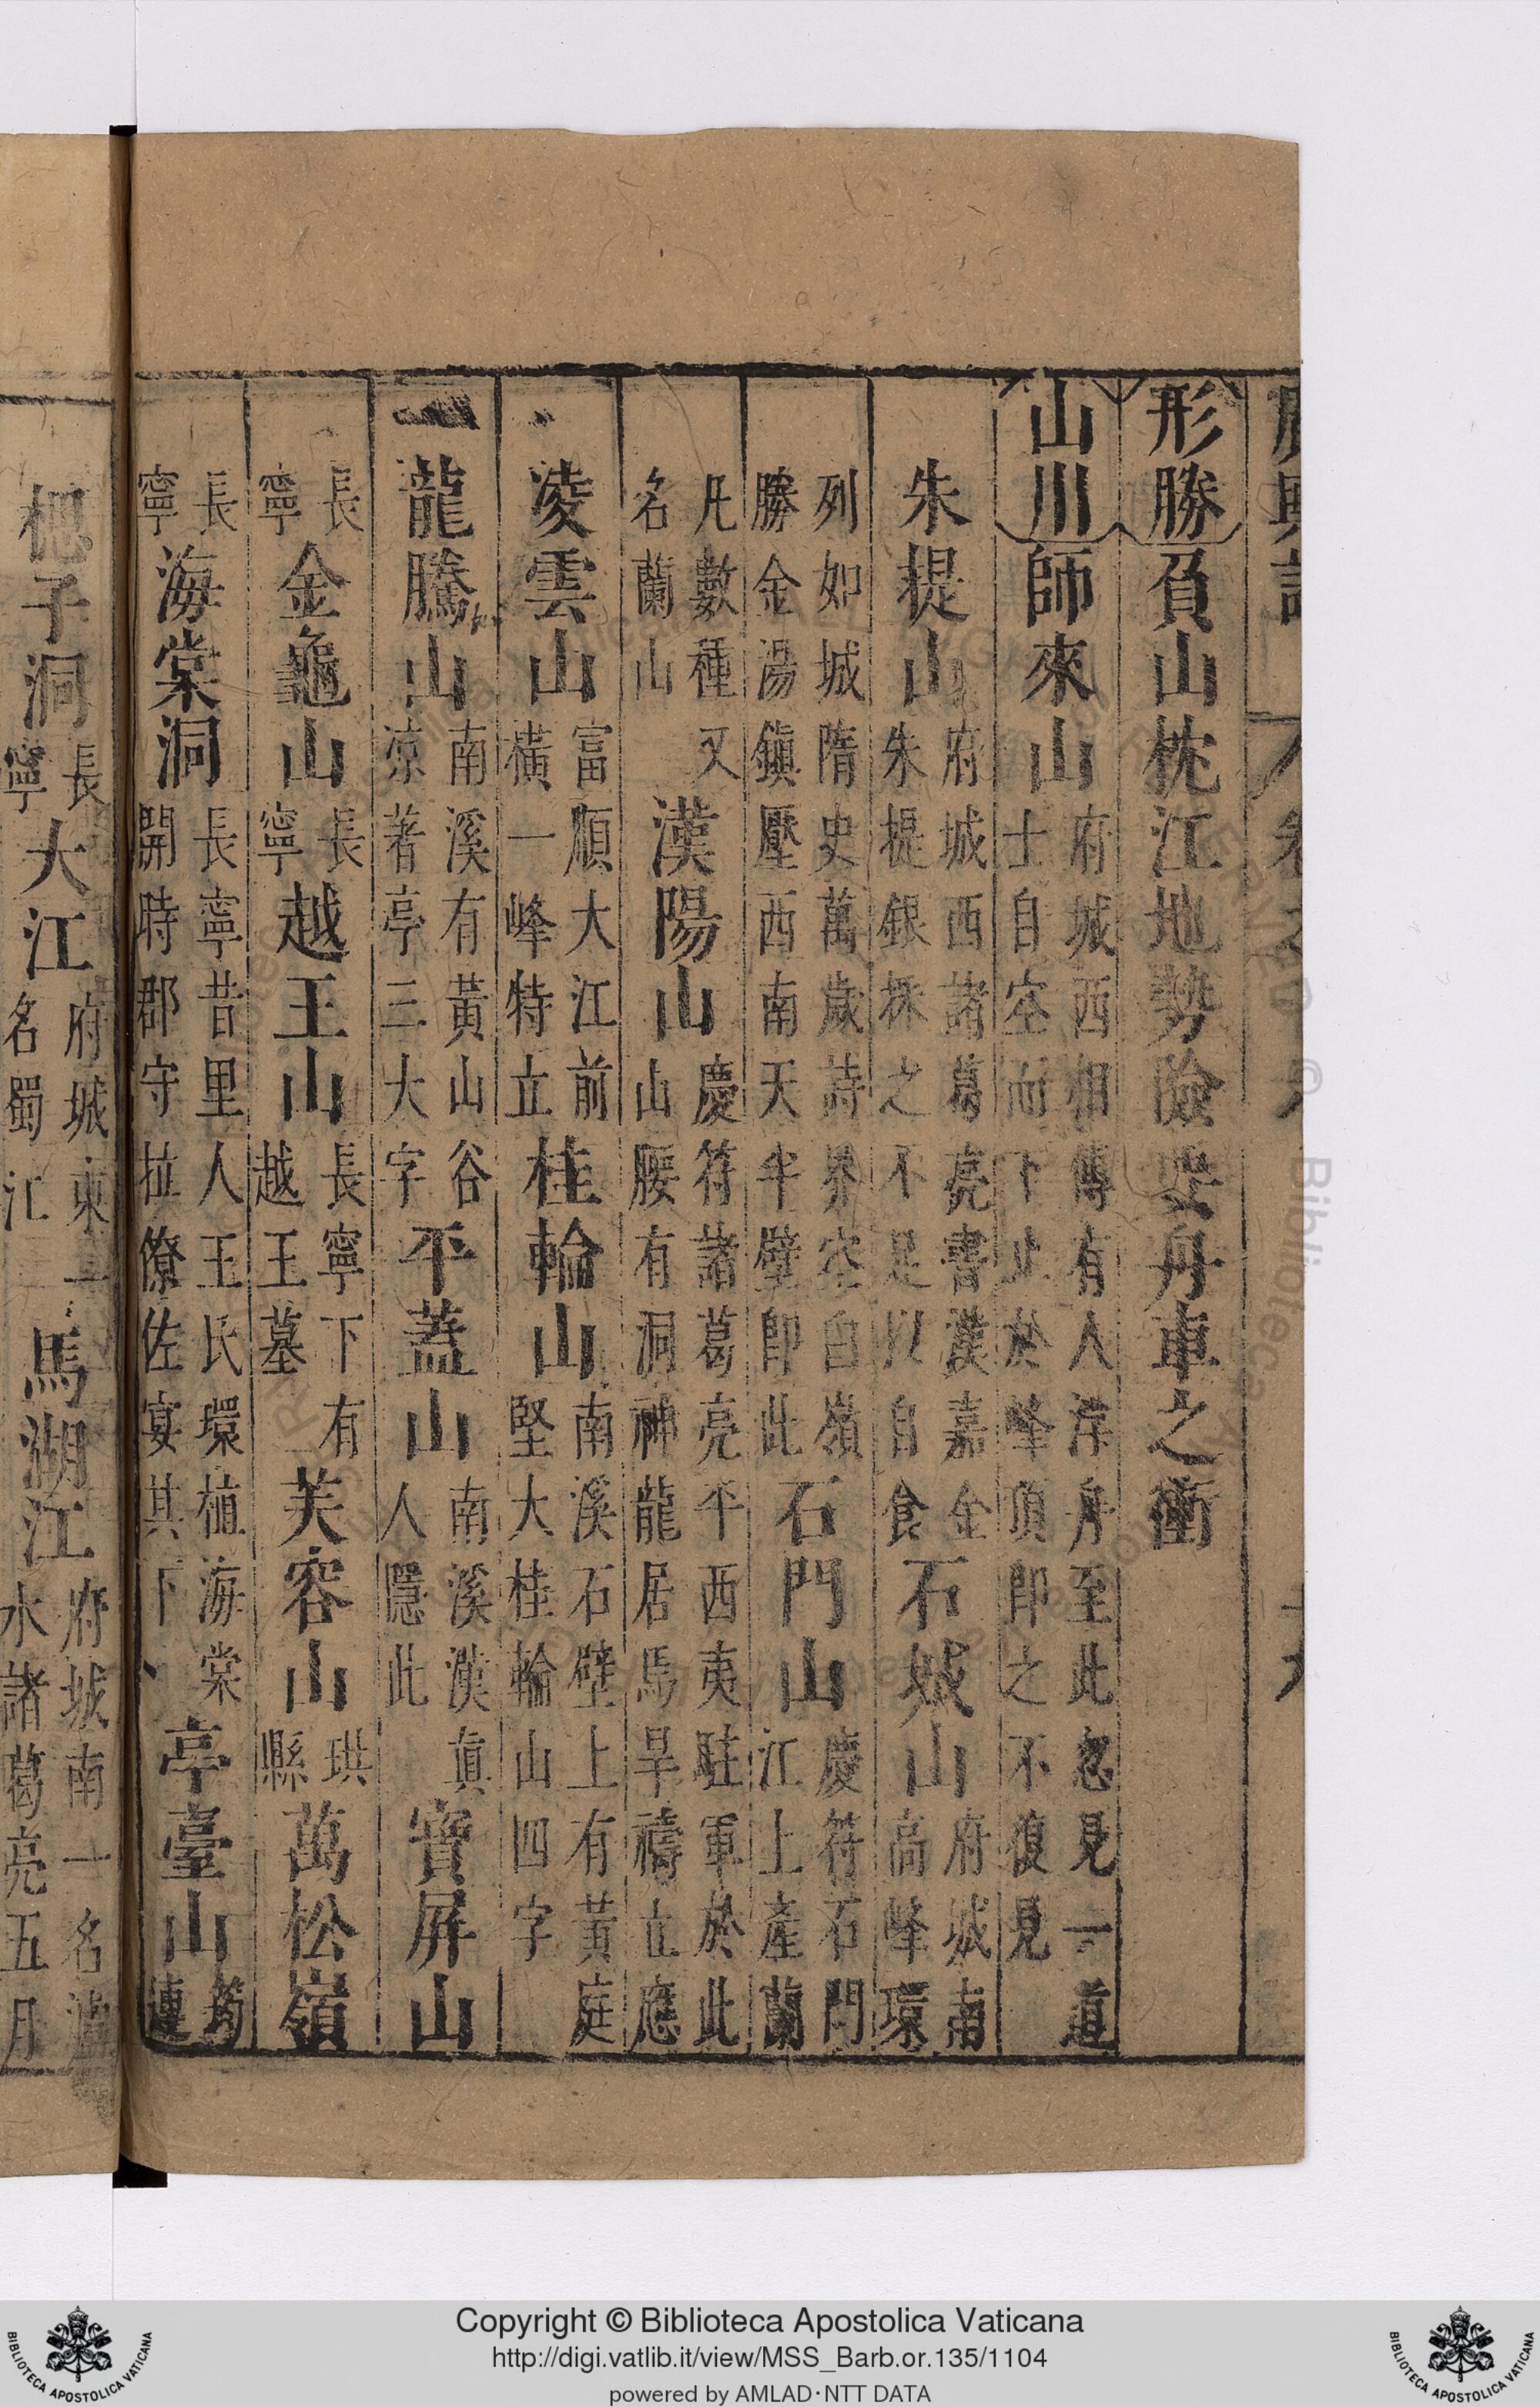 形勝負山枕江地勢險要舟車之衝
山川師來山府城西相傳有人浮舟至此忽見一道士自空而下止於峰頂即之不復見
朱提山府城西諸葛亮書漢嘉金朱提銀採之不足以自食石城山府城南高峰環
列如城隋史萬歲詩界空自嶺勝金湯鎮壓西南天半壁即此石門山慶符石門江上產蘭
凡數種又名蘭山漢陽山慶符諸葛亮平西夷駐軍於此山腰有洞神龍居焉旱禱立應
凌雲山富順大江前橫一峰特立桂輪山南溪石壁上有黃庭堅大桂輪山四字
龍騰山南溪有黃山谷涼著亭三大字平蓋山南溪漢真人隱此寶屏山
長寧金龜山長寧越王山長寧下有越王墓芙容山珙縣萬松嶺
長寧海棠洞長寧昔里人王氏環植海棠開時郡守拉僚佐宴其下亭臺山筠連
樬子洞長寧大江府城東一名蜀江馬湖江府城南一名瀘水諸葛亮五月
Copyright © Biblioteca Apostolica Vaticana
http://digi.vatlib.it/view/MSS_Barb.or.135/1104
powered by AMLAD·NTT DATA
BIBLIOTECA APOSTOLICA VATICANA
BIBLIOTECA APOSTOLICA VATICANA